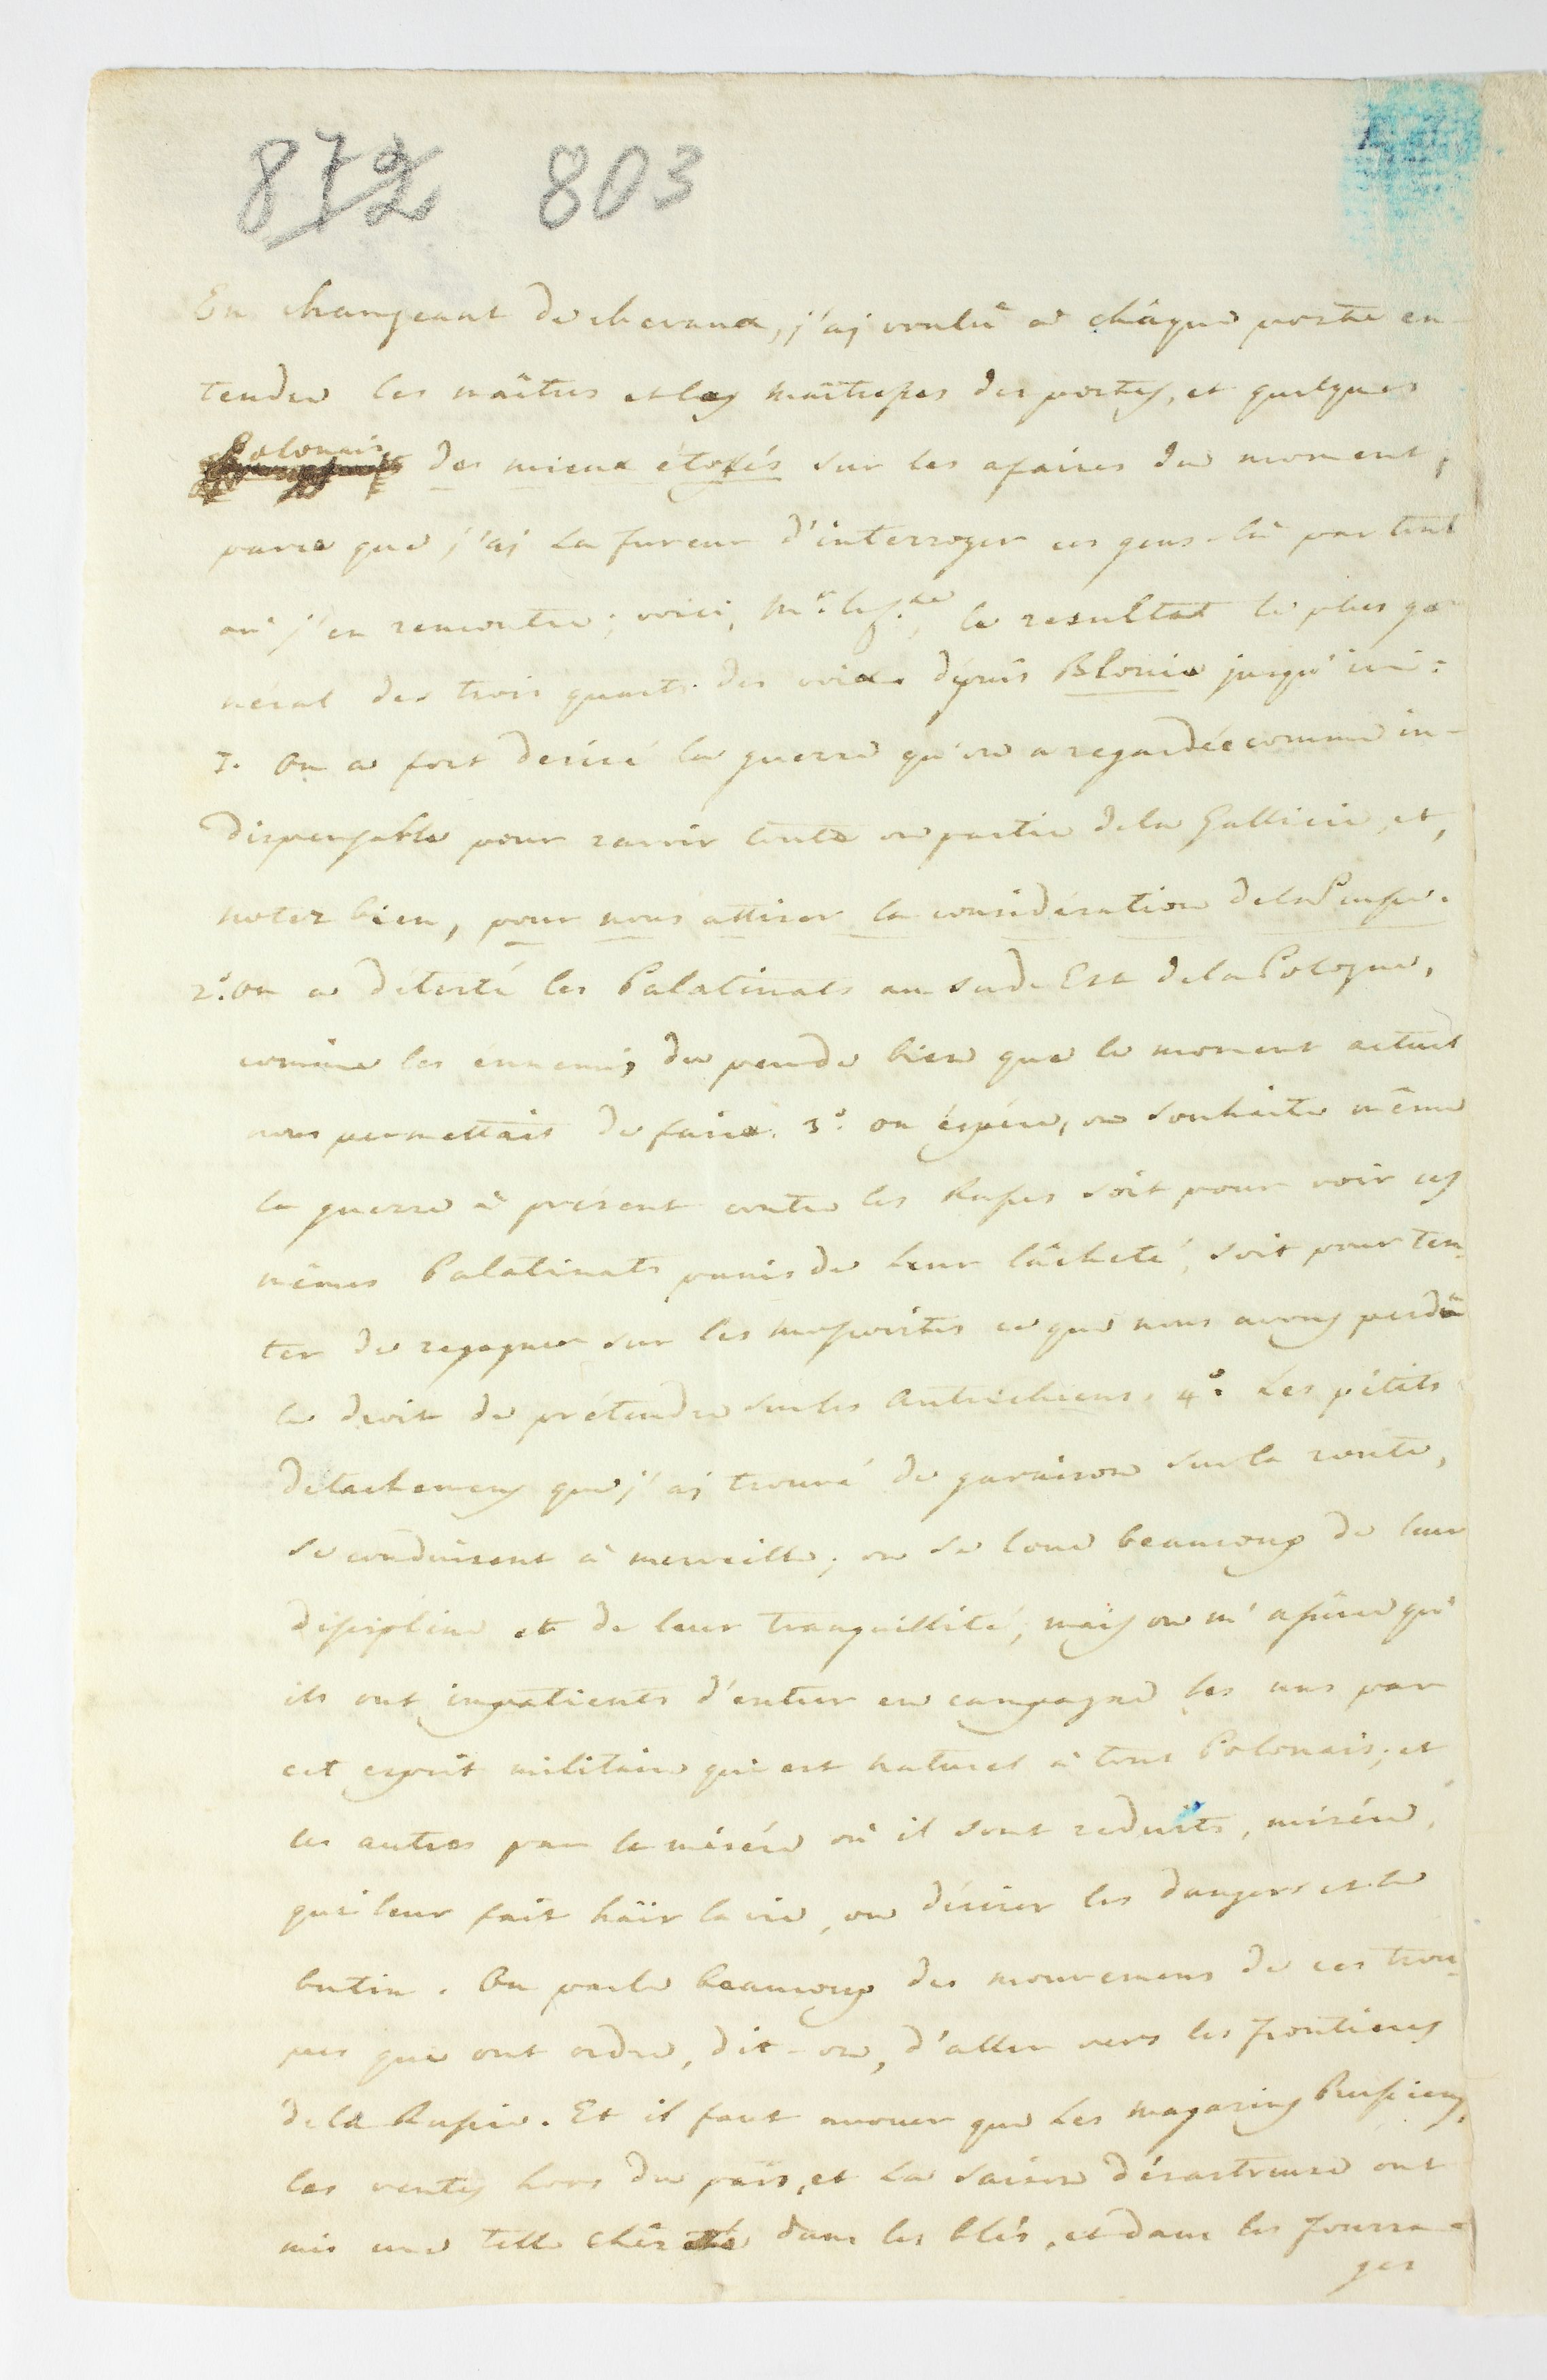 872 803
En changeant de chevaux, j'aj voulû à châque poste en-
tendre les maîtres et les maîtresses des postes, et quelques
Polonais des mieux étofés sur les afaires du moment,
parce que j'aj la fureur d'interroger ces gens-là par tout
où j'en rencontre; voici, le resultat le plus gé-
néral des trois quarts des voix depuis Blonie jusqu'ici:
1. On a fort desiré la guerre qu'on a regardée comme in-
dispensable pour ravir toute ou partie de la Gallicie, et,
notez bien, pour nous attirer la considération de la Prusse.
2.° on a détesté les Palatinats au Sud-Est de la Pologne,
comme les ennemis du peu de bien que le moment actuel
nous permettait de faire. 3.° on éspére, on souhaite même
la guerre à présent contre les Russes soit pour voir ces
mêmes Palatinats punis de leur lâcheté, soit pour ten-
ter de regagner sur les Moscovites ce que nous avons perdû
le droit de prétendre sur les Autrichiens. 4.° Les pétits
détachemens que j'aj trouvé de garnison sur la route,
se conduisent à merveille; on se loue beaucoup de leur
discipline et de leur tranquillité, mais on m'assûre qu'
ils ont impatients d'entrer en campagne les uns par
cet esprit militaire qui est naturel à tout Polonais; et
les autres par la misére où il sont reduits, misére,
qui leur fait haïr la vie, ou désirer les dangers et le
butin. On parle beaucoup des mouvemens de ces trou-
pes qui ont ordre, dit-on, d'aller vers les frontieres
de la Russie. Et il faut avouer que les magasins Prussiens,
les ventes hors du païs, et la saison désastreuse ont
mis une telle chèreté dans les blés, et dans les fourra-
ges